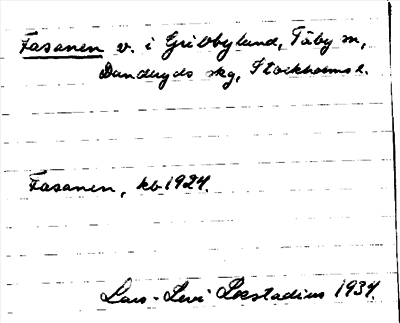 Fasanen v. i Gribbylund, Täby sn,
Danderyds skg, Stockholms l.
Fasanen, kb 1924.
Lars-Levi Læstadius 1934.